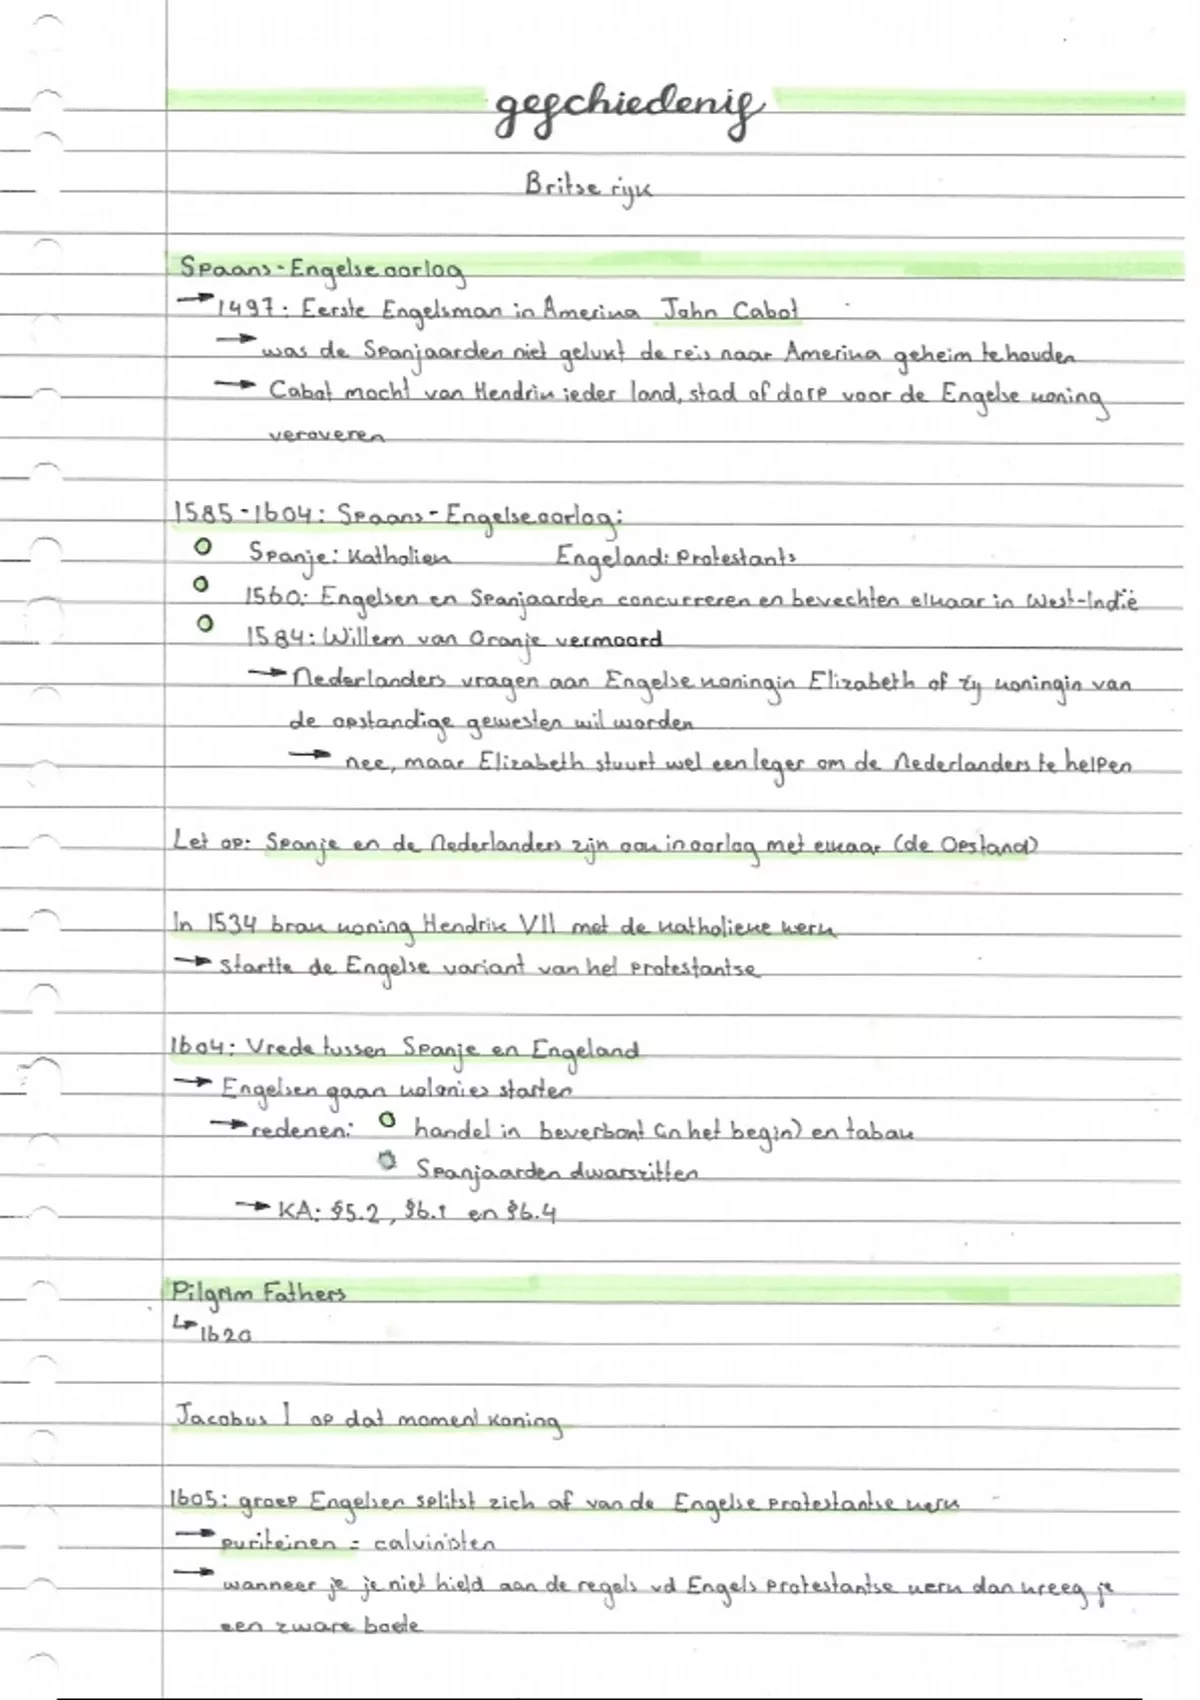 geschiedenis
Britse rijk
Spaans-Engelse oorlog
→ 1497: Eerste Engelsman in Amerika John Cabot
→ was de Spanjaarden niet gelukt de reis naar Amerika geheim te houden
→ Cabot mocht van Hendrik ieder land, stad of dorp voor de Engelse koning
veroveren
1585-1604: Spaans-Engelse oorlog:
Spanje: Katholiek Engeland: Protestants
1560: Engelsen en Spanjaarden concurreren en bevechten elkaar in West-Indië
1584: Willem van Oranje vermoord
→ Nederlanders vragen aan Engelse koningin Elizabeth of zij koningin van
de opstandige gewesten wil worden
→ nee, maar Elizabeth stuurt wel een leger om de Nederlanders te helpen
Let op: Spanje en de Nederlanders zijn ook in oorlog met elkaar (de Opstand)
In 1534 brak koning Hendrik VII met de katholieke kerk
→ startte de Engelse variant van het protestantse
1604: Vrede tussen Spanje en Engeland
→ Engelsen gaan kolonies starten
→ redenen: handel in beverbont (in het begin) en tabak
Spanjaarden dwarszitten
→ KA: §5.2, §6.1 en §6.4
Pilgrim Fathers
↳ 1620
Jacobus I op dat moment koning
1605: groep Engelsen splitst zich af van de Engelse protestantse kerk
→ puriteinen = calvinisten
→ wanneer je je niet hield aan de regels vd Engels protestantse kerk dan kreeg je
een zware boete